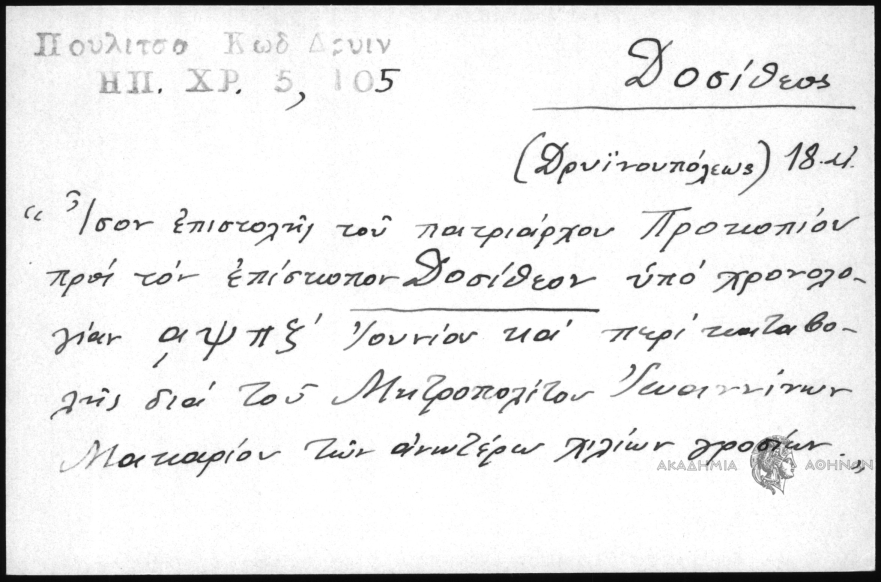 Πουλιτσα Κωδ Δρυιν
ΗΠ. ΧΡ. 5, 105
Δοσίθεος
(Δρυϊνουπόλεως) 18
“Ἴσον ἐπιστολῆς τοῦ πατριάρχου Προκοπίου
πρός τόν ἐπίσκοπον Δοσίθεον ὑπό χρονολο-
γίαν ͵αψπξ΄ Ἰουνίου καί περί καταβο-
λῆς διά τοῦ Μητροπολίτου Ἰωαννίνων
Μακαρίου τῶν ἀνωτέρω χιλίων γροσίων.”
ΑΚΑΔΗΜΙΑ ΑΘΗΝΩΝ